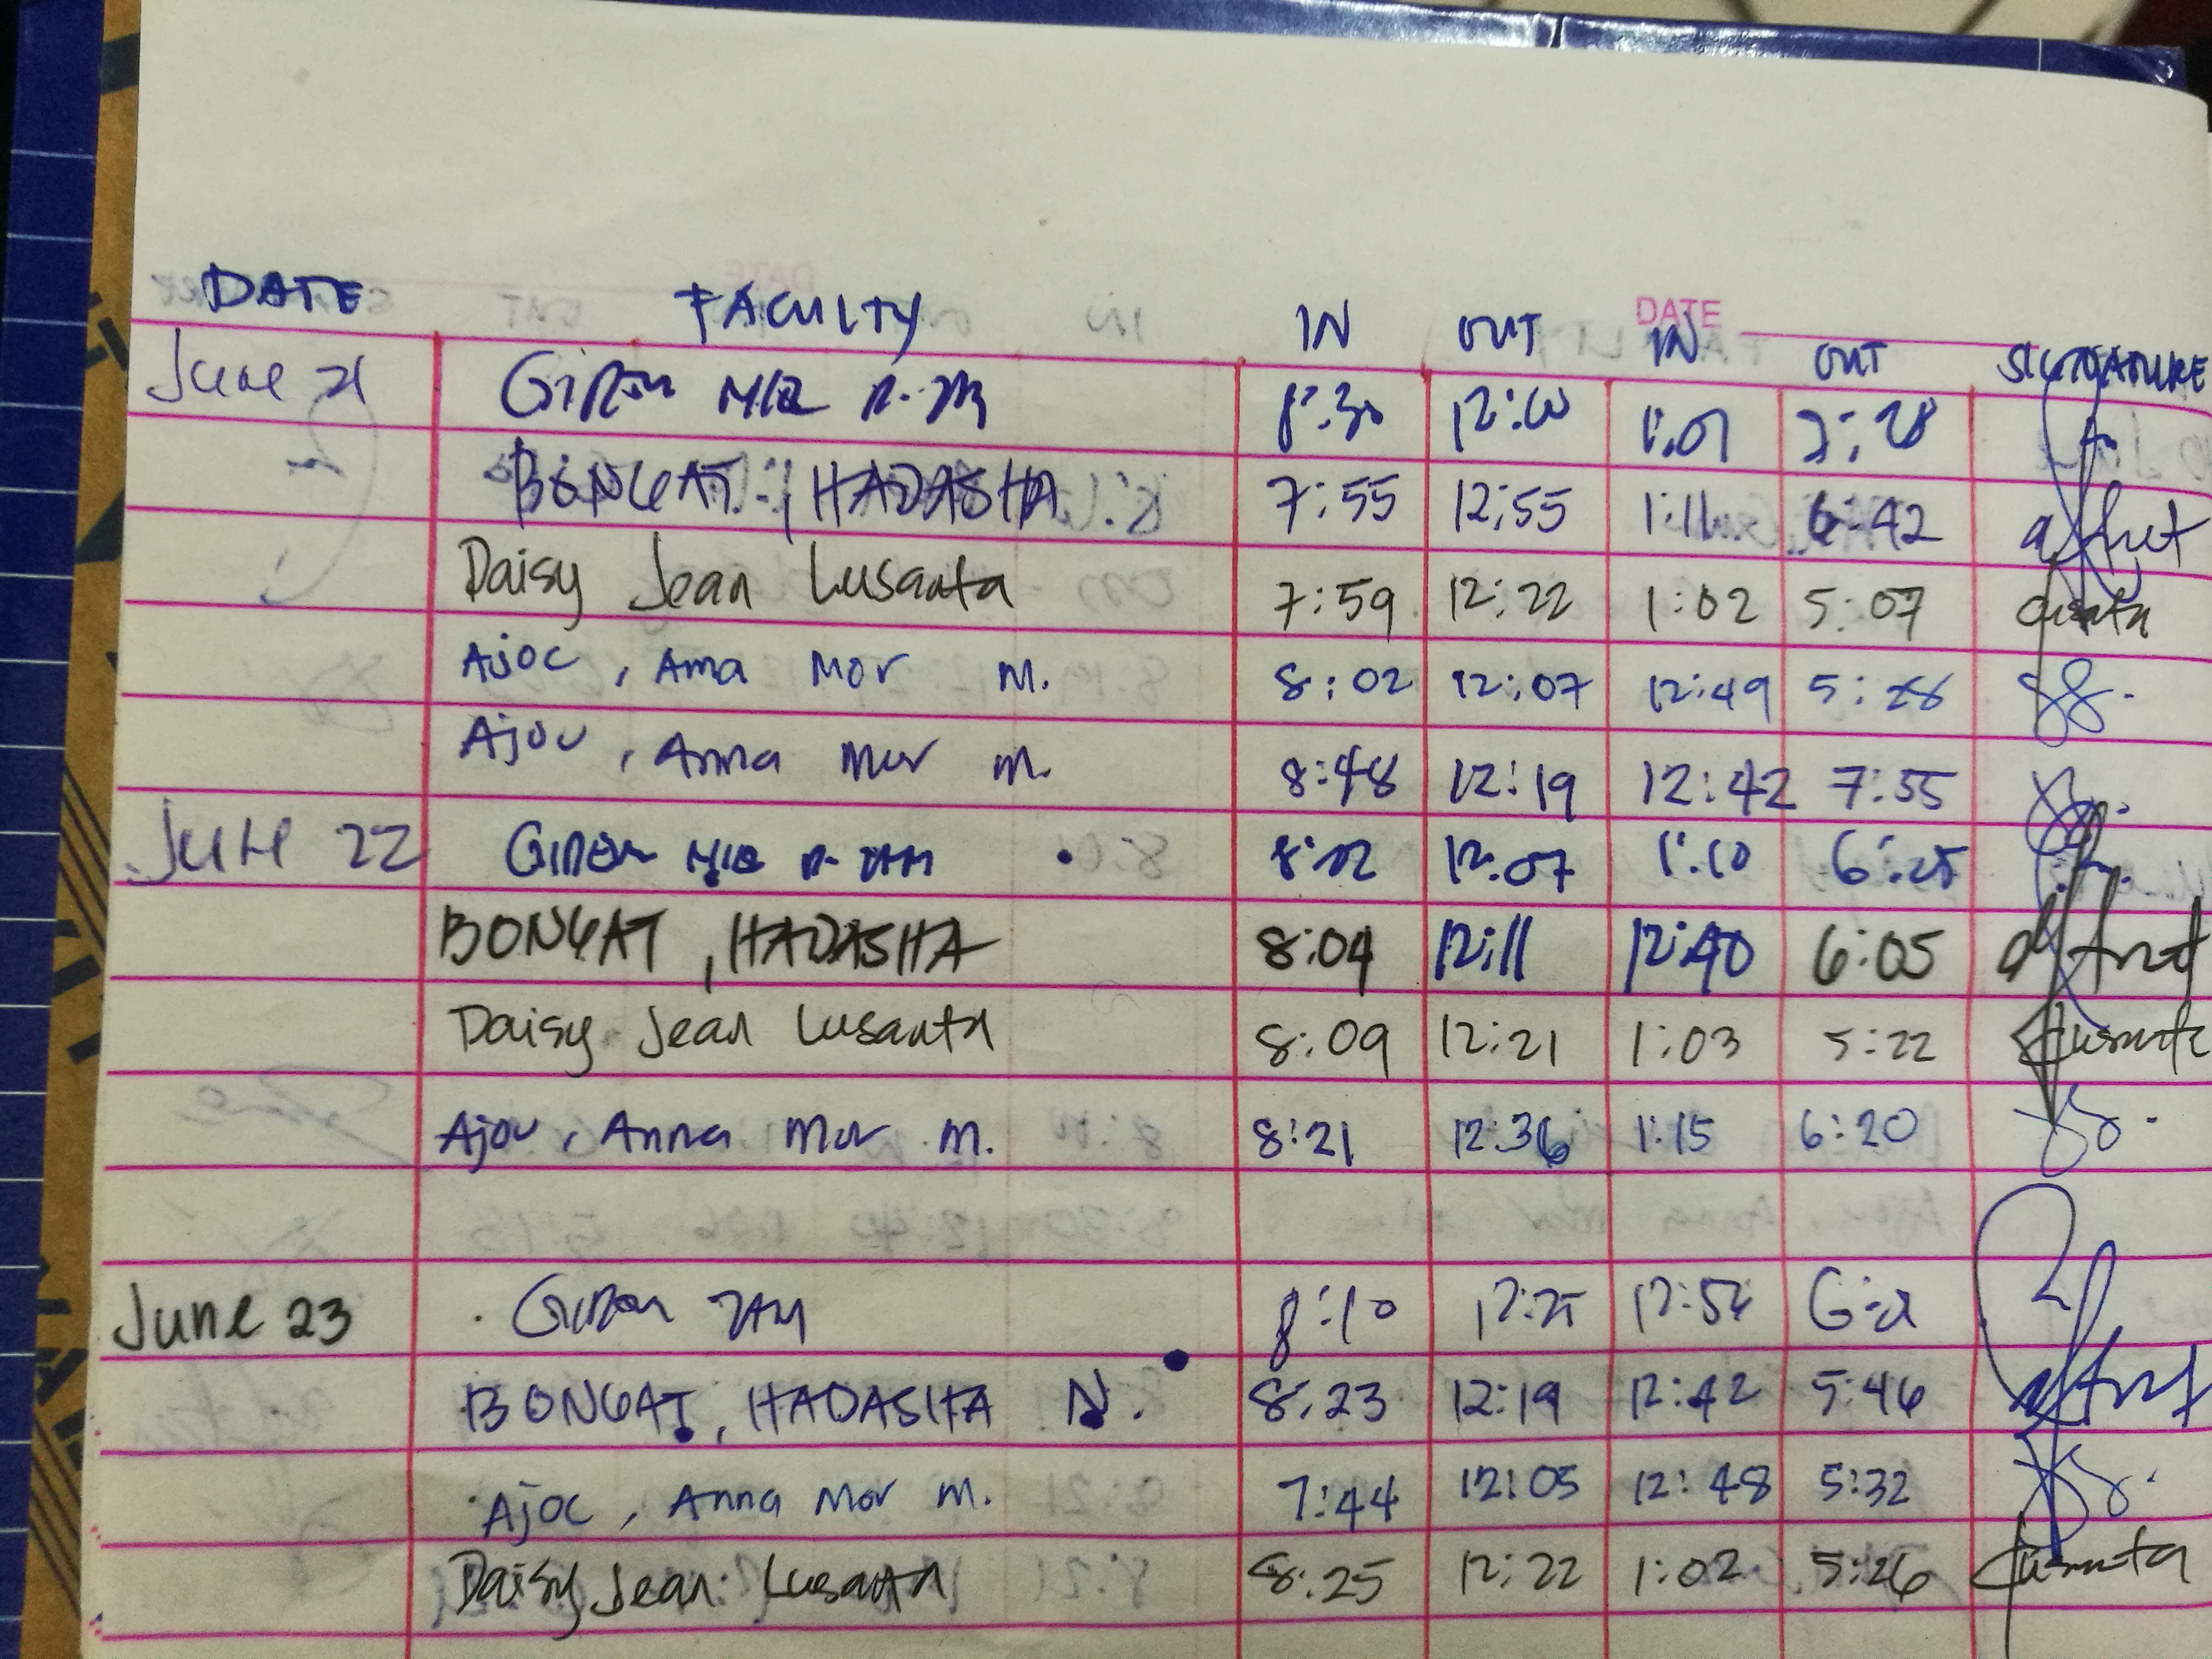 DATE FACULTY IN OUT IN OUT SIGNATURE
DATE
June 21 8:30 12:00 1:07
BONGAT, HADASHA 7:55 12:55 1:11 6:42
Daisy Jean Lusanta 7:59 12:22 1:02 5:07
Ajoc, Anna Mor M. 8:02 12:07 12:49 5:28
Ajoc, Anna Mor M. 8:48 12:19 12:42 7:55
June 22 8:02 12:07 1:10 6:25
BONGAT, HADASHA 8:04 12:11 12:40 6:05
Daisy Jean Lusanta 8:09 12:21 1:03 5:22 Lusanta
Ajoc, Anna Mor M. 8:21 12:36 1:15 6:20
June 23 8:10
BONGAT, HADASHA N. 8:23 12:19 12:42 5:46
Ajoc, Anna Mor M. 7:44 12:05 12:48 5:32
Daisy Jean Lusanta 8:25 12:22 1:02 5:26 Lusanta